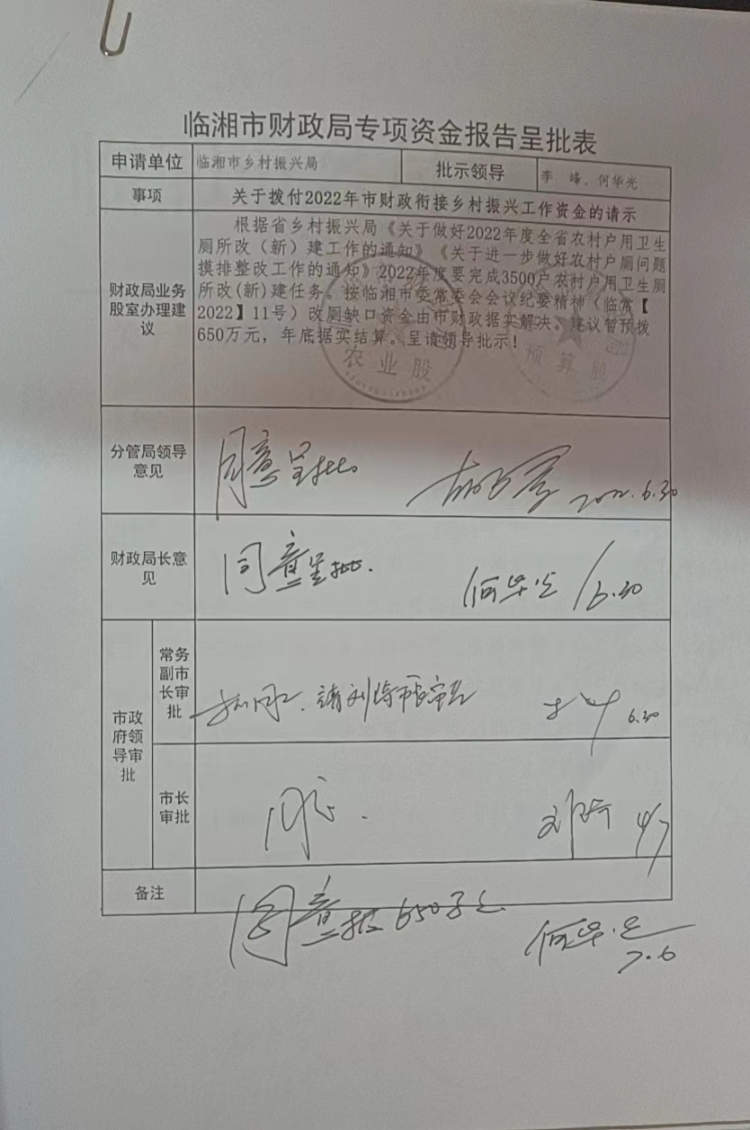 临湘市财政局专项资金报告呈批表
申请单位 临湘市乡村振兴局 批示领导 李 峰、何华光
事项 关于拨付2022年市财政衔接乡村振兴工作资金的请示
财政局业务股室办理建议
根据省乡村振兴局《关于做好2022年度全省农村户用卫生
厕所改（新）建工作的通知》《关于进一步做好农村户厕问题
摸排整改工作的通知》2022年度要完成3500户农村户用卫生厕
所改(新)建任务。按临湘市委常委会会议纪要精神（临常【
2022】11号）改厕缺口资金由市财政据实解决。建议暂预拨
650万元，年底据实结算。呈请领导批示！
农业股
预算股
分管局领导
意见
同意呈批 2022.6.30
财政局长意
见
同意呈批. 何华光 6.30
市政
府领
导审
批
常务
副市
长审
批
6.30
市长
审批
同意. 4/7
备注
同意拨650万元 何华光
7.6